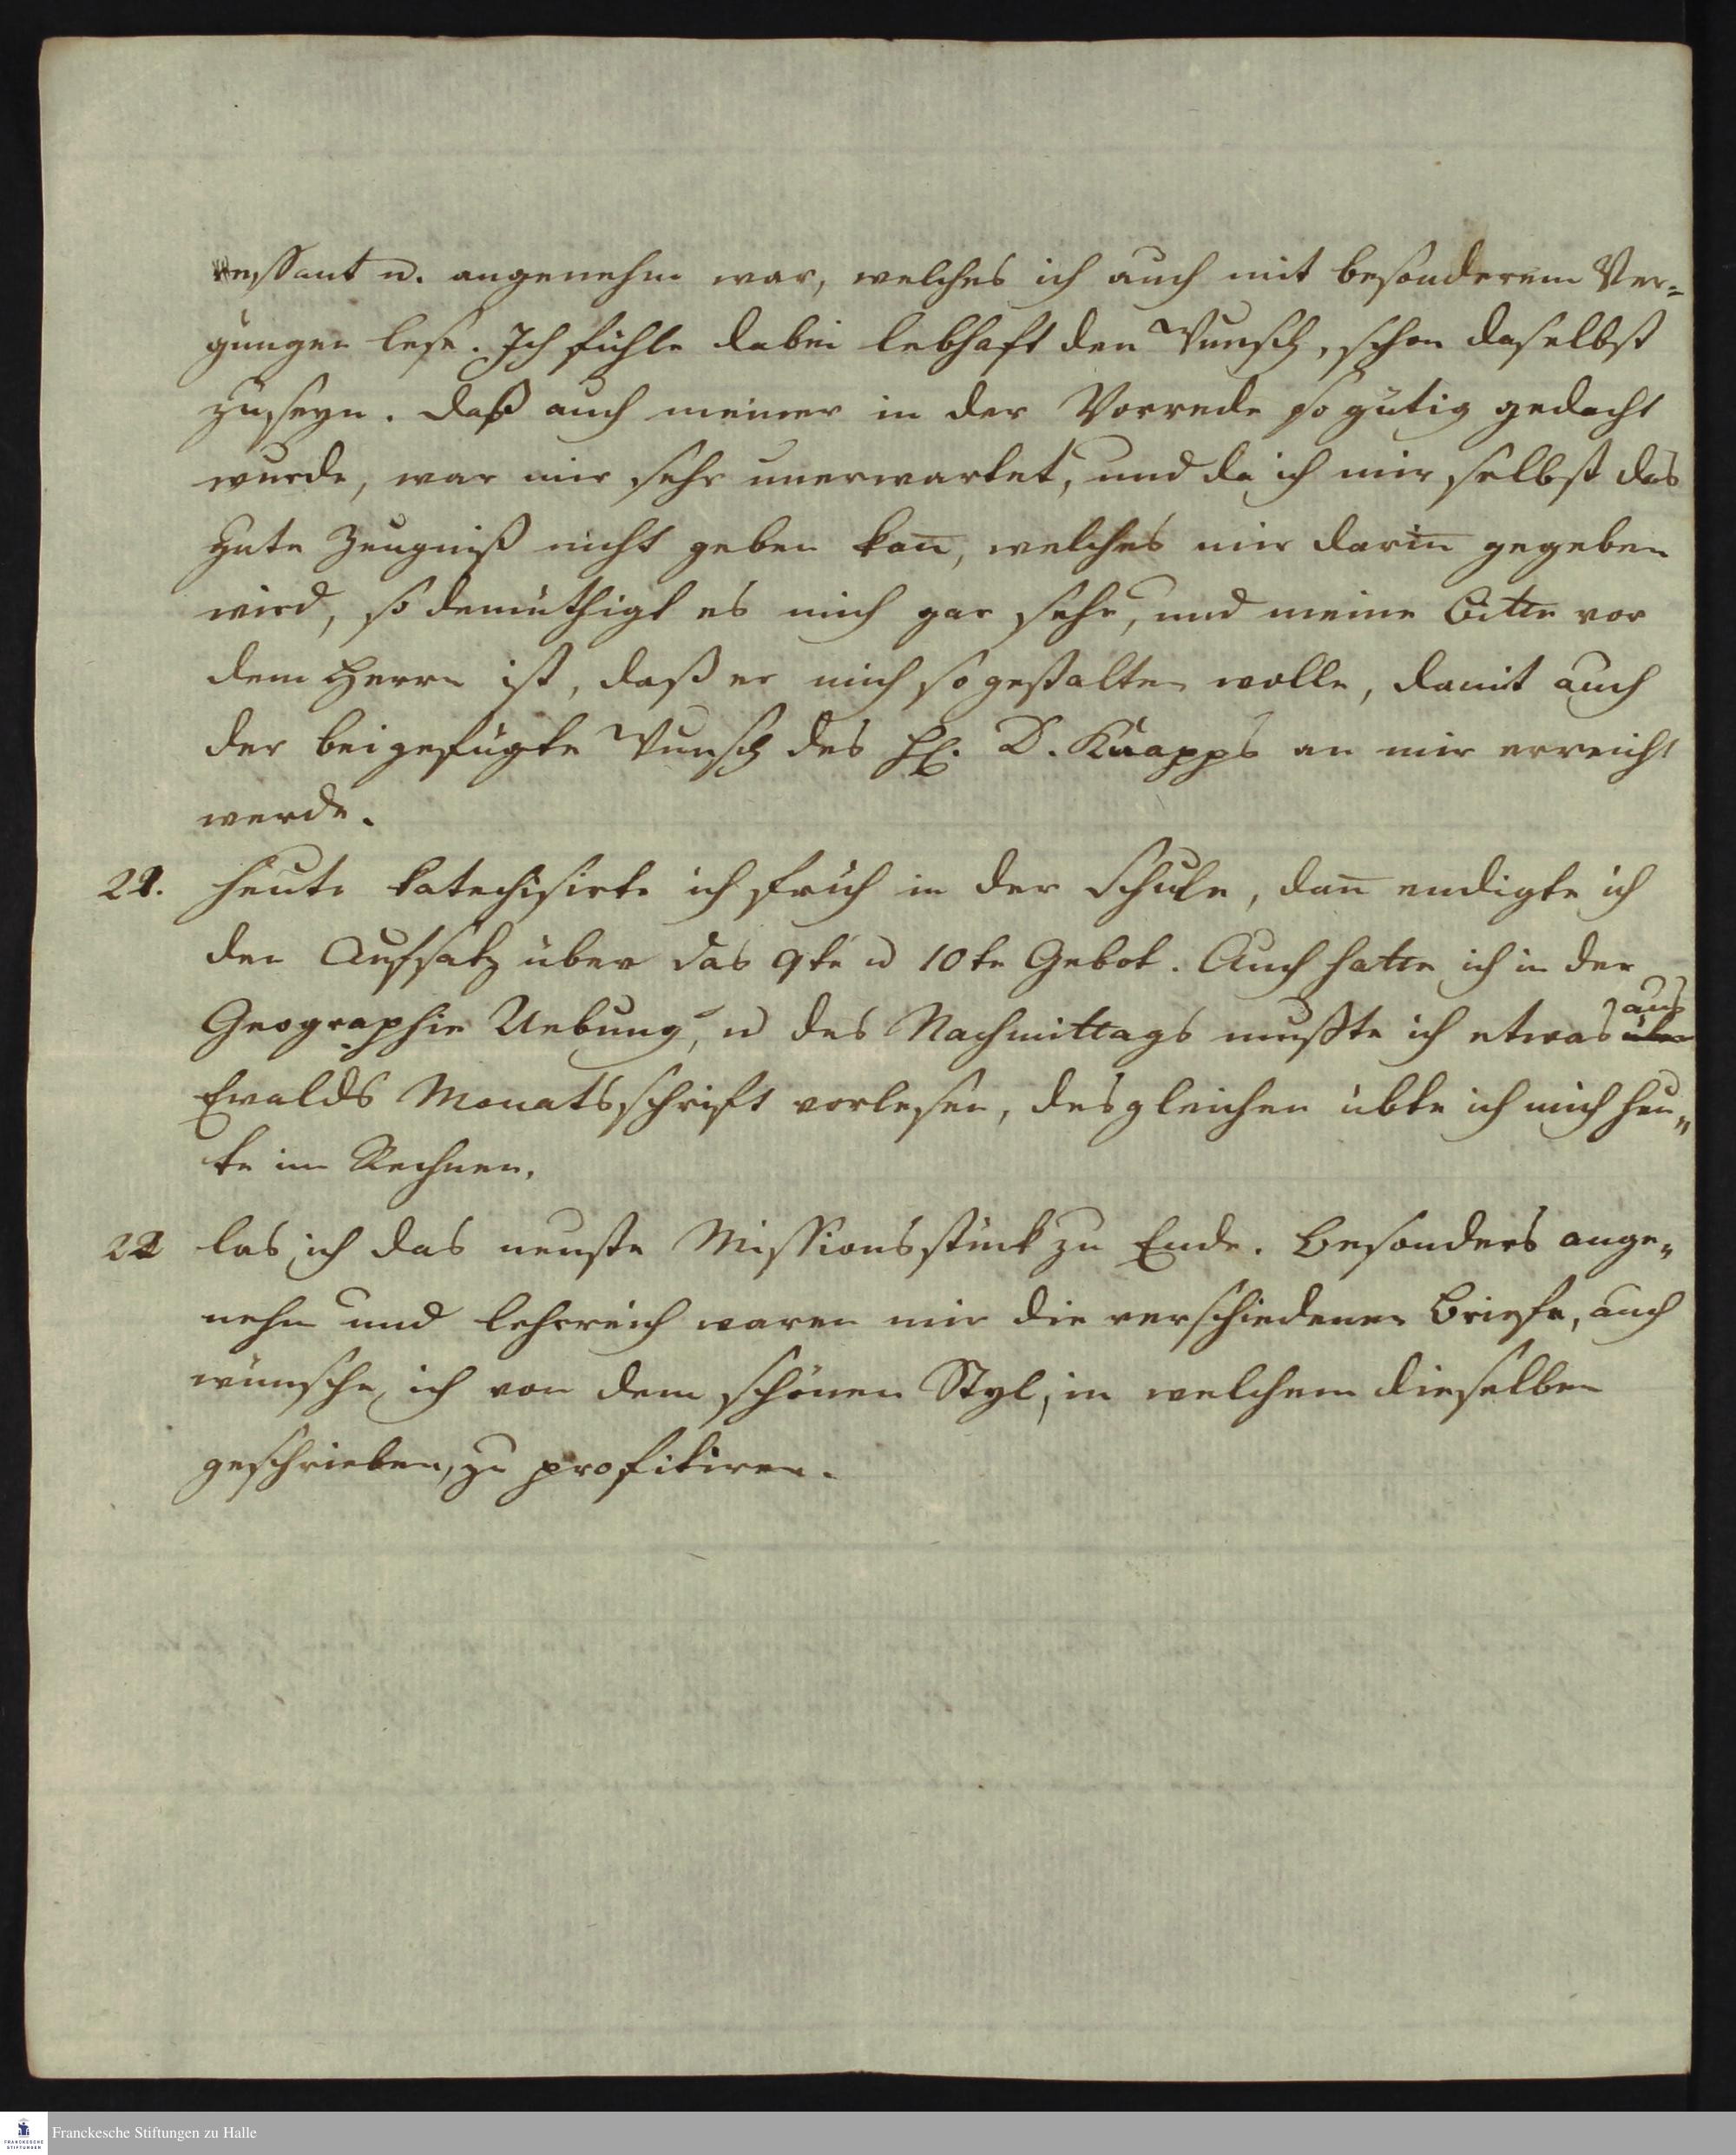 ressant u. angenehm war, welches ich auch mit besonderem Ver=
gnügen lese. Ich fühle dabei lebhaft den Wunsch, schon daselbst
zu seyn. Daß auch meiner in der Vorrede so gütig gedacht
wurde, war mir sehr unerwartet, und da ich mir selbst das
gute Zeugniß nicht geben kan̅, welches mir darin̅ gegeben
wird, so demüthigt es mich gar sehr, und meine Bitte vor
dem Herrn ist, daß er mich so gestalten wolle, damit auch
der beigefügte Wunsch des H. D. Knapps an mir erreicht
werde.
21. Heute katechisirte ich früh in der Schule, dan̅ endigte ich
den Aufsatz über das 9te u 10te Gebot. Auch hatte ich in der
Geographie Uebung, u des Nachmittags mußte ich etwas aus über
Ewalds Monatsschrift vorlesen, desgleichen übte ich mich heu„
te im Rechnen.
22 las ich das neuste Missionsstück zu Ende. Besonders ange„
nehm und lehrreich waren mir die verschiedenen Briefe, auch
wünsche ich von dem schönen Styl, in welchem dieselben
geschrieben, zu profitiren.
FRANCKESCHE STIFTUNGEN
Franckesche Stiftungen zu Halle